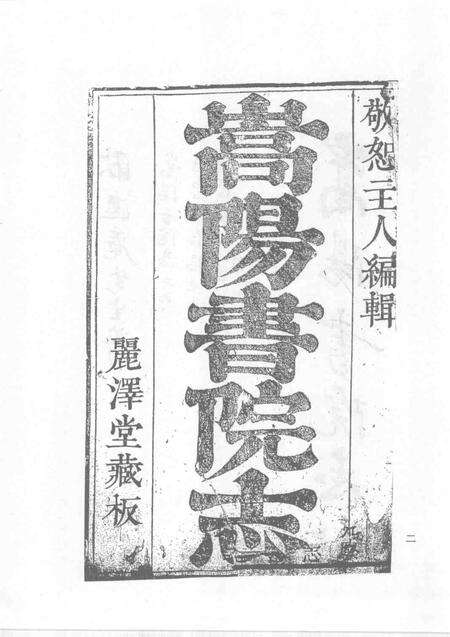 敬恕主人編輯
嵩陽書院志
麗澤堂藏板
二